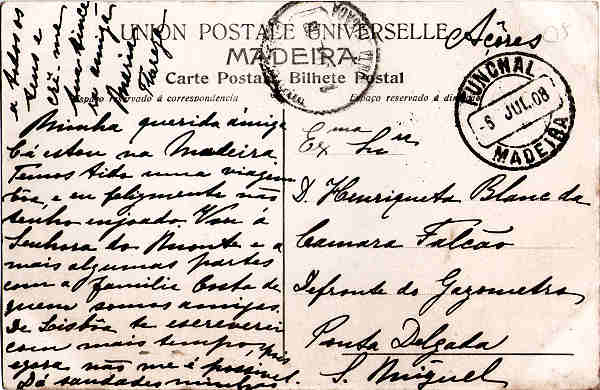 UNION POSTALE UNIVERSELLE
MADEIRA
Carte Postale Bilhete Postal
Espaço reservado á correspondencia
Espaço reservado á
Açôres
FUNCHAL
6 JUL. 08
MADEIRA
Minha querida amiga
Cá estou na Madeira.
Temos tido uma viagem
boa, e eu felizmente não
tenho enjoado. Vou á
Senhora do Monte e a
mais algumas partes
com a familia Costa de
quem somos amigas.
De Lisbôa te escreverei
com mais tempo, pois
agora não me é possivel.
Dá saudades minhas
a todos os
teus e
crê-me
tua
amiga
Maria
Exma Snra
D. Henriqueta Blanc da
Camara Falcão
Defronte do Gazometro
Ponta Delgada
S. Miguel